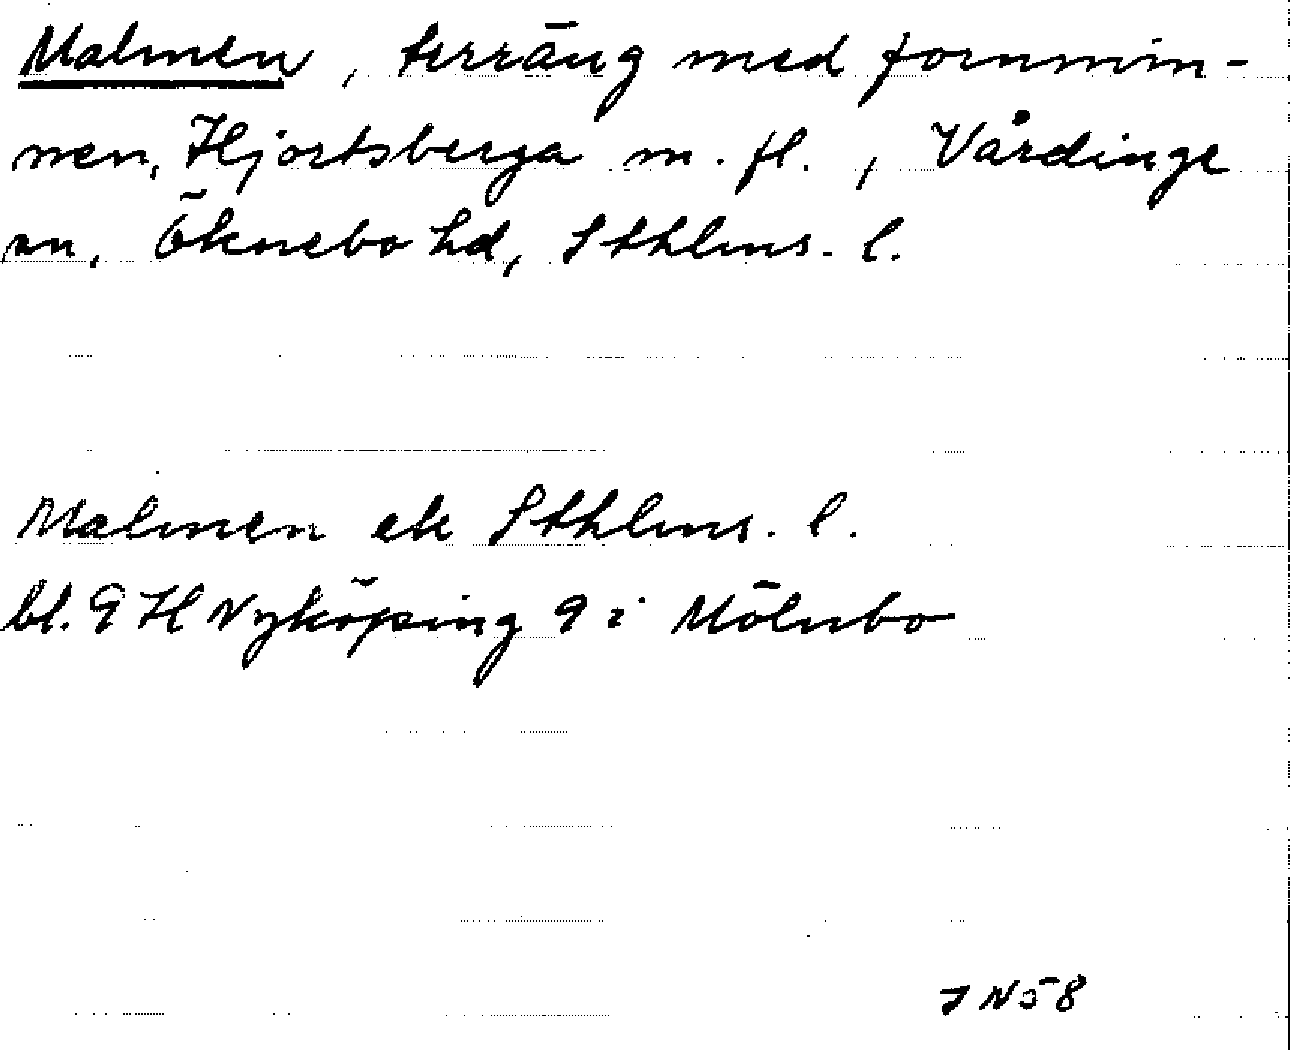 Malmen, terräng med fornmin-
nen, Hjortsberga m. fl., Vårdinge
sn, Öknebo hd, Sthlms. l.
Malmen ek Sthlms. l.
bl. 9 H Nyköping 9 i Mölnbo